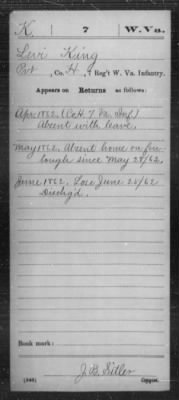 K. 7 W. Va.
Levi King
Pvt, Co. H, 7 Reg't W. Va. Infantry.
Appears on
Returns as follows:
Apr. 1862. (Co H. 7 Va. Inf.)
Absent with leave.
May 1862. Absent home on fur-
lough since May 28/62.
June 1862. Loss June 26/62
Dischg'd.
Book mark:
J. B. Sitler
(546) Copyist.